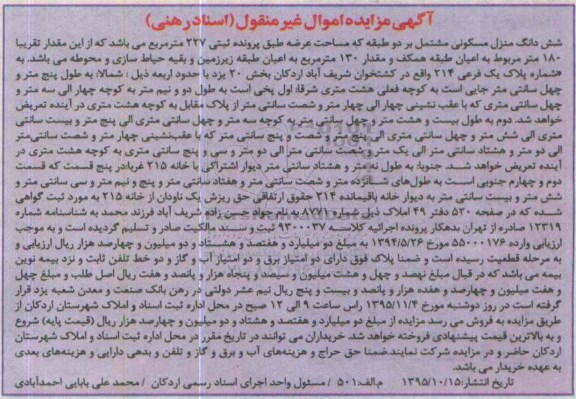 آگهی مزایده اموال غیر منقول (اسناد رهنی)
شش دانگ منزل مسکونی مشتمل بر دو طبقه که مساحت عرضه طبق پرونده ثبتی ۲۲۷ مترمربع می باشد که از این مقدار تقریبا
۱۸۰ متر مربوط به اعیان طبقه همکف و مقدار ۱۳۰ مترمربع به اعیان طبقه زیرزمین و بقیه حیاط سازی و محوطه می باشد. به
شماره پلاک یک فرعی ۲۱۴ واقع در کشتخوان شریف آباد اردکان بخش ۲۰ یزد با حدود اربعه ذیل: شمالا: به طول پنج متر و
چهل سانتی متر جایی است به کوچه فعلی هشت متری شرقا: اول پخی است به طول دو و نیم متر به کوچه چهار الی سه متر و
چهل سانتی متری که با عقب نشینی چهار الی چهار متر و شصت سانتی متر از پلاک مقابل به کوچه هشت متری در آینده تعریض
خواهد شد. دوم به طول بیست و هشت متر و چهل سانتی متر به کوچه سه متر و چهل سانتی متری الی پنج متر و بیست سانتی
متری الی شش متر و چهل سانتی متری الی پنج متر و شصت و پنج سانتی متر که با عقب‌نشینی چهار متر و شصت سانتی‌متر
الی دو متر و هشتاد سانتی متر الی یک متر و شصت سانتی متر الی دو متر و سی و پنج سانتی متری به کوچه هشت متری در
آینده تعریض خواهد شد. جنوبا: به طول نه متر و هشتاد سانتی متر دیوار اشتراکی با خانه ۲۱۵ غربا: در پنج قسمت که قسمت
دوم و چهارم جنوبی است به طول‌های شانزده متر و شصت سانتی متر و هفتاد سانتی متر و پنج و نیم متر و سی سانتی متر و
شش متر و بیست سانتی متر به دیوار خانه باقیمانده ۲۱۴ حقوق ارتفاقی حق ریزش یک ناودان از خانه ۲۱۵ به مورد ثبت گواهی
شده که در صفحه ۵۳۰ دفتر ۴۹ املاک ذیل شماره ۸۷۷۱ به نام جواد حسن زاده شریف آباد فرزند محمد به شناسنامه شماره
۱۲۳۱۹ صادره از تهران بدهکار پرونده اجرائیه کلاسه ۹۳۰۰۰۳۷ ثبت و سند مالکیت صادر و تسلیم گردیده است و به موجب
ارزیابی وارده ۵۵۰۰۰۱۷۶ مورخ ۱۳۹۴/۵/۲۶ به مبلغ دو میلیارد و هفتصد و هشتاد و دو میلیون و چهارصد هزار ریال ارزیابی و
به مرحله قطعیت رسیده است و ضمنا پلاک فوق دارای دو امتیاز برق و دو امتیاز آب و گاز و دو خط تلفن ثابت و نزد بیمه نوین
بیمه می باشد که در قبال مبلغ نهصد و چهل و هشت میلیون و سیصد و پنجاه هزار و پانصد و هفت ریال اصل طلب و مبلغ چهل
و هفت میلیون و چهارصد و هفده هزار و پانصد و بیست و پنج ریال نیم عشر دولتی در رهن بانک صنعت و معدن شعبه یزد قرار
گرفته است در روز دوشنبه مورخ ۱۳۹۵/۱۱/۴ راس ساعت ۹ الی ۱۲ صبح در محل اداره ثبت اسناد و املاک شهرستان اردکان از
طریق مزایده به فروش می رسد مزایده از مبلغ دو میلیارد و هفتصد و هشتاد و دو میلیون و چهارصد هزار ریال (قیمت پایه) شروع
و به بالاترین قیمت پیشنهادی فروخته خواهد شد. خریداران می توانند در تاریخ مقرر در محل اداره ثبت اسناد و املاک شهرستان
اردکان حاضر و در مزایده شرکت نمایند. ضمنا حق حراج و هزینه‌های آب و برق و گاز و تلفن و بدهی دارایی و هزینه‌های بعدی
به عهده خریدار می باشد.
تاریخ انتشار: ۱۳۹۵/۱۰/۱۵ م.الف: ۵۰۱ / مسئول واحد اجرای اسناد رسمی اردکان / محمد علی بابایی احمدآبادی